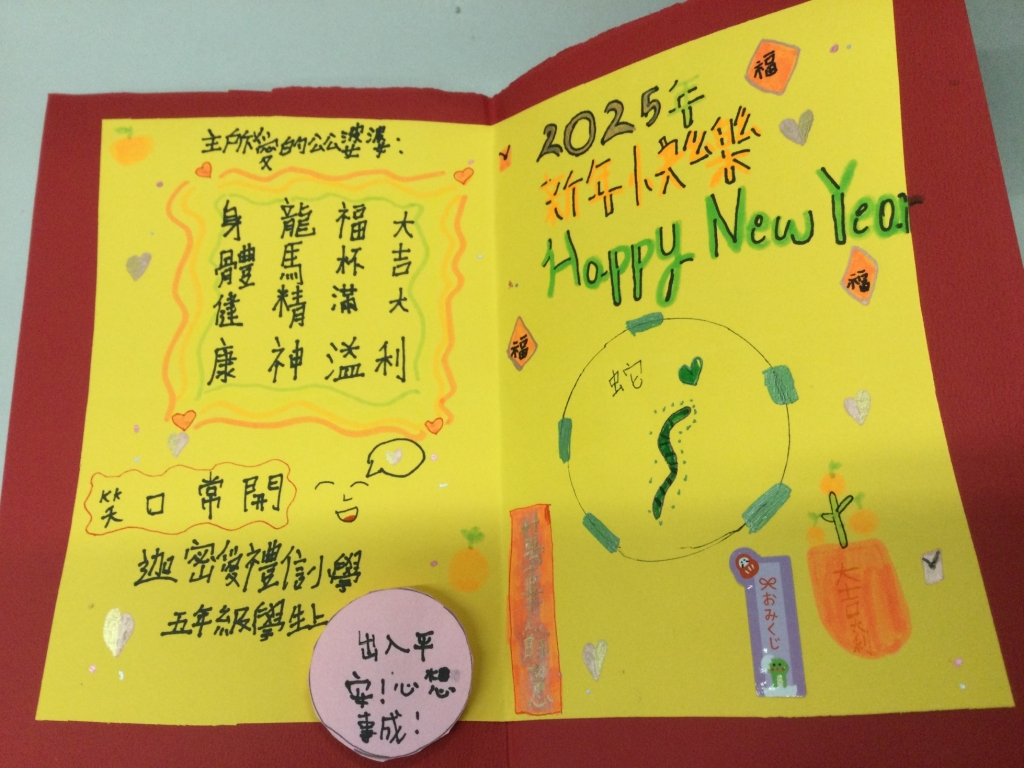 主所愛的公公婆婆：
大吉大利
福杯滿溢
龍馬精神
身體健康
笑口常開
迦密愛禮信小學
五年級學生上
出入平
安！心想
事成！
福
2025年
新年快樂
Happy New Year
福
福
蛇
おみくじ
大吉大利